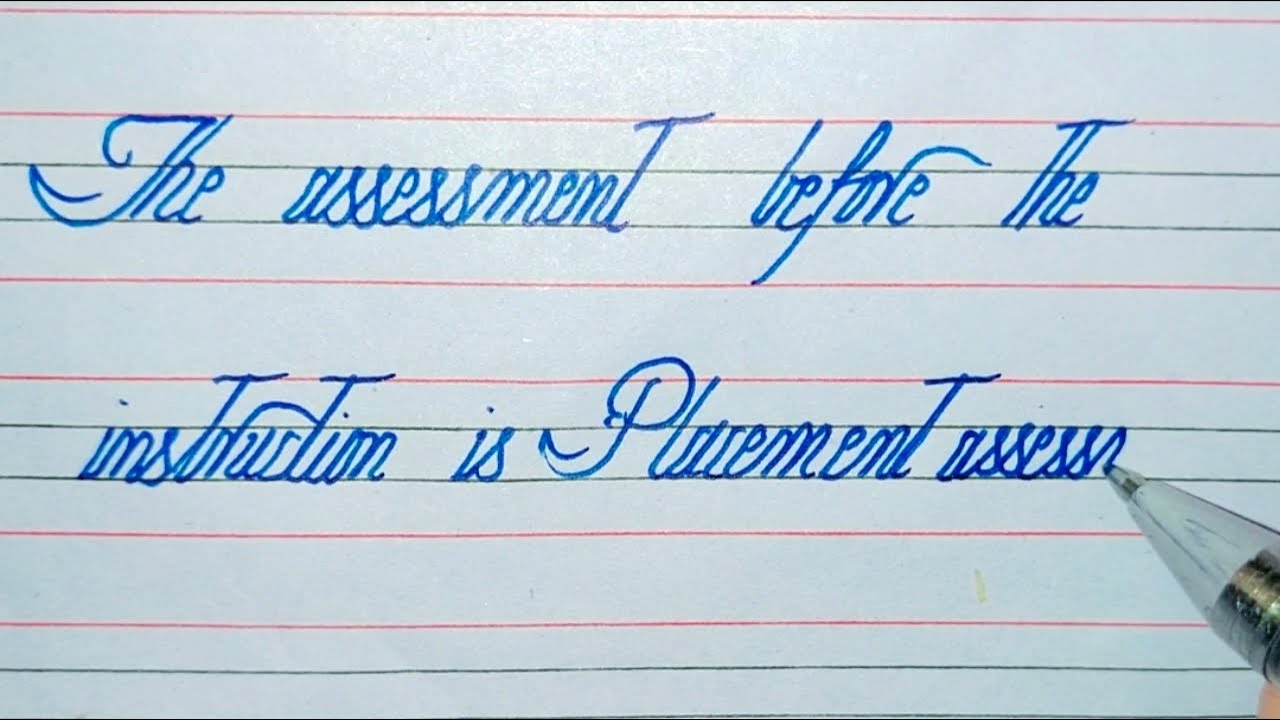 The assessment before the
instruction is Placement assess